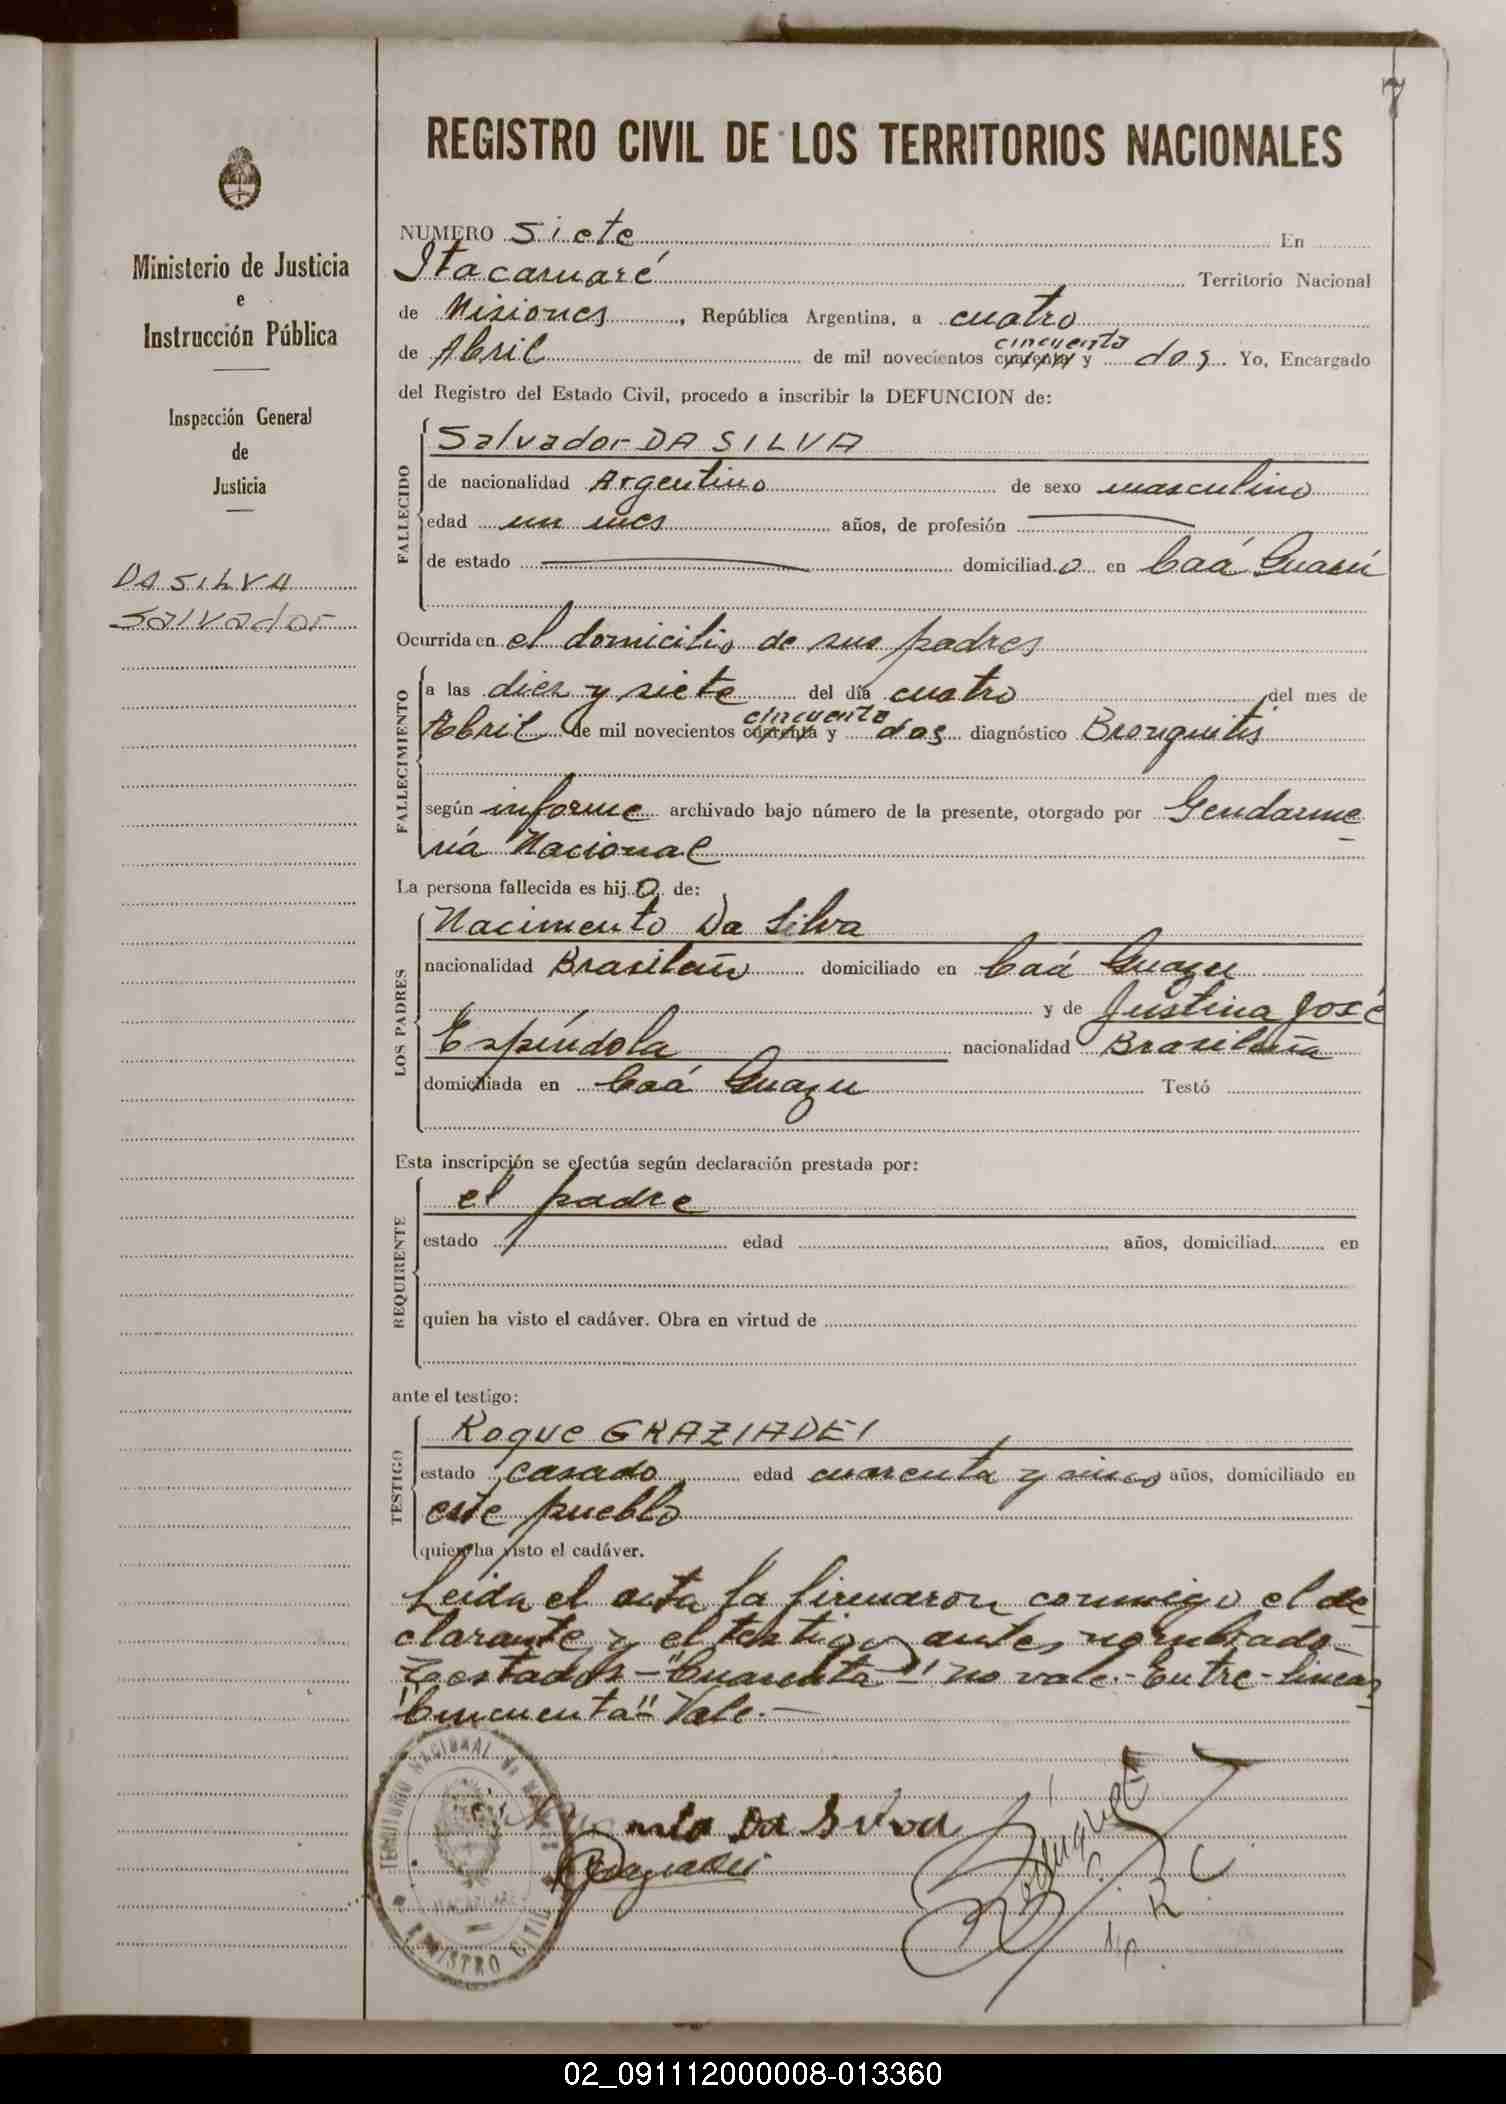 7
REGISTRO CIVIL DE LOS TERRITORIOS NACIONALES
Ministerio de Justicia
e
Instrucción Pública
Inspección General
de
Justicia
DA SILVA
Salvador
NUMERO Siete En
Itacaruaré Territorio Nacional
de Misiones, República Argentina, a cuatro
cincuenta
de Abril de mil novecientos cuarenta y dos Yo, Encargado
del Registro del Estado Civil, procedo a inscribir la DEFUNCION de:
FALLECIDO
Salvador DA SILVA
de nacionalidad Argentino de sexo masculino
edad un mes años, de profesión
de estado domiciliado en Caá Guazú
Ocurrida en el domicilio de sus padres
FALLECIMIENTO
a las diez y siete del día cuatro del mes de
cincuenta
Abril de mil novecientos cuarenta y dos diagnóstico Bronquitis
según informe archivado bajo número de la presente, otorgado por Gendarme-
ría Nacional
La persona fallecida es hijo de:
LOS PADRES
Nacimento Da Silva
nacionalidad Brasileño domiciliado en Caá Guazu
y de Justina José
Espíndola nacionalidad Brasileña
domiciliada en Caá Guazu Testó
Esta inscripción se efectúa según declaración prestada por:
REQUIRENTE
el padre
estado edad años, domiciliad en
quien ha visto el cadáver. Obra en virtud de
ante el testigo:
TESTIGO
Roque GRAZIADEI
estado casado edad cuarenta y cinco años, domiciliado en
este pueblo
quien ha visto el cadáver.
Leida el acta la firmaron conmigo el de-
clarante y el testigo antes nombrado-
Testados-"Cuarenta-" no vale.- Entre-lineas
"Cincuenta" Vale.-
TERRITORIO NACIONAL DE
REGISTRO CIVIL
Da Silva
02_091112000008-013360